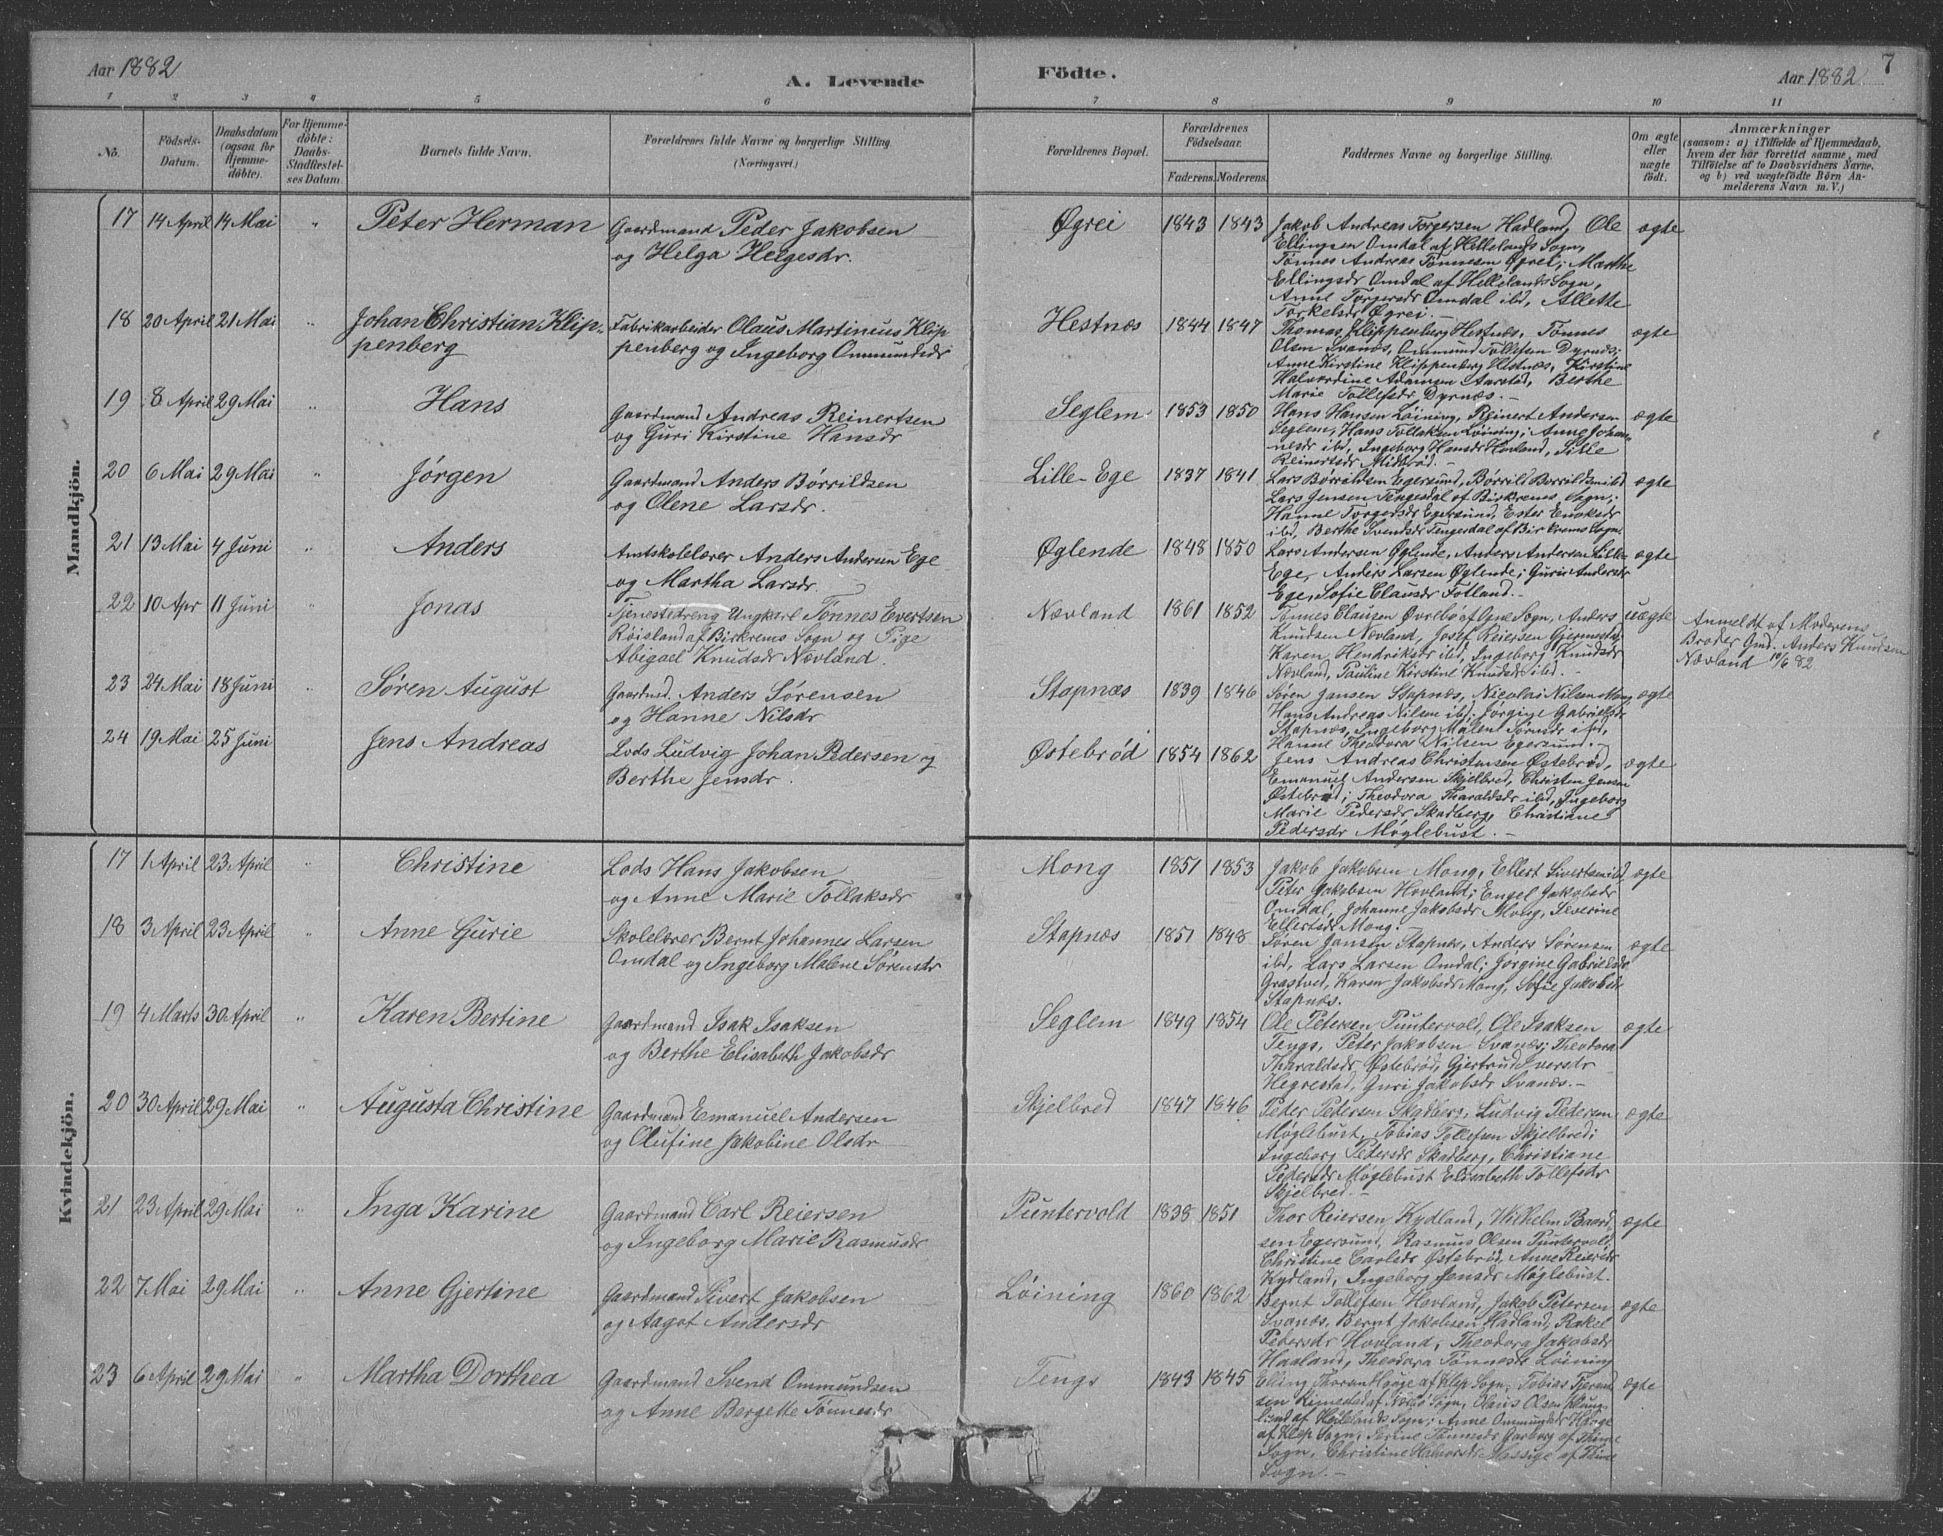 Aar 1882
A. Levende
Födte.
Aar 1882
7
1 2 3 4 5 6 7 8 9 10 11
No.
Födsels-Datum.
Daabsdatum (ogsaa for Hjemmedöbte).
For Hjemmedöbte: Daabs-Stadfæstelses Datum.
Barnets fulde Navn.
Forældrenes fulde Navne og borgerlige Stilling. (Næringsvei.)
Forældrenes Bopæl.
Forældrenes Födselsaar.
Faderens. Moderens.
Faddernes Navne og borgerlige Stilling.
Om ægte eller uægte födt.
Anmærkninger
(saasom: a) i Tilfælde af Hjemmedaab, hvem der har forrettet samme, med Tilföielse af to Daabsvidners Navne, og b) ved uægtefödte Börn Anmelderens Navn m. V.)
Mandkjön.
17 14 April 14 Mai " Peter Herman Gaardmand Peder Jakobsen
og Helga Helgesdr.
Øgrei 1843 1843 Jakob Andreas Torgersen Hadland, Ole ægte
Ellingsen Omdal af Hellelands Sogn,
Tønnes Andreas Tønnesen Øgrei; Marthe
Ellingsdr Omdal af Hellelands Sogn,
Anne Torgersdr Omdal ibd, Allette
Torkelsdr Øgrei. -
18 20 April 21 Mai " Johan Christian Klip- Fabrikarbeider Olaus Martinius Klip
penberg penberg og Ingeborg Ommundsdr
Hestnæs 1844 1847 Thomas Klippenberg Hestnæs, Tønnes ægte
Olsen Svanæs, Ommund Tollefsen Dyrnæs;
Anne Kirstine Klippenberg Hestnæs, Kirstine
Halvardine Adamsen Aarstad, Berthe
Marie Tollefsdr Dyrnæs. -
19 8 April 29 Mai " Hans Gaardmand Andreas Reinertsen
og Guri Kirstine Hansdr
Seglem 1853 1850 Hans Hansen Løining, Reinert Andersen ægte
Seglem, Hans Tollaksen Løining; Anne Johan-
nesdr ibd, Ingeborg Hansdr Hovland, Sille
Reinertsdr Midbrød. -
20 6 Mai 29 Mai " Jørgen Gaardmand Anders Børrildsen
og Olene Larsdr.
Lille-Ege 1837 1841 Lars Børrildsen Egersund, Børrild Børrildsen ibd ægte
Lars Jensen Tengesdal af Birkrems Sogn;
Hanne Torgersdr Egersund, Ester Enoksdr
ibd, Berthe Svendsdr Tengesdal af Birkrems Sogn.
21 13 Mai 4 Juni " Anders Amtskolelærer Anders Andersen Ege
og Martha Larsdr.
Øglende 1848 1850 Lars Andersen Øglende, Anders Andersen Lille- ægte
Ege, Anders Larsen Øglende; Gurie Andersdr
Ege, Sofie Clausdr Fotland. -
22 10 Apr 11 Juni " Jonas Tjenestedreng Ungkarl Tønnes Evertsen
Røisland af Birkrems Sogn og Pige
Abigael Knudsdr Nævland.
Nævland 1861 1852 Tønnes Clausen Øvrebø af Ogne Sogn, Anders uægte
Knudsen Nævland, Josef Reiersen Gjermestad
Karen Hendriksdr ibd, Ingeborg Knudsdr
Nævland, Pauline Kirstine Knudsdr ibd. -
Anmeldt af Moderens
Broder Gmd. Anders Knudsen
Nævland 11/6 82
23 24 Mai 18 Juni " Søren August Gaardmd. Anders Sørensen
og Hanne Nilsdr
Stapnæs 1839 1846 Søren Jansen Stapnæs, Nicolai Nilsen Mong ægte
Hans Andreas Nilsen ibd; Jørgine Gabrielsdr
Stapnæs, Ingeborg Malene Sørensdr ibd,
Hanne Theodora Nilsen Egersund. -
24 19 Mai 25 Juni Jens Andreas Lods Ludvig Johan Pedersen og
Berthe Jensdr.
Østebrød 1854 1862 Jens Andreas Christensen Østebrød, ægte
Emanuel Andersen Skjelbred, Christen Jensen
Østebrød; Theodora Tharaldsdr ibd, Ingeborg
Marie Pedersdr Skadberg, Christiane
Pedersdr Møglebust. -
Kvindekjön.
17 1 April 23 April " Christine Lods Hans Jakobsen
og Anne Marie Tollaksdr
Mong 1851 1853 Jakob Jakobsen Mong, Ellert Sivertsen ibd ægte
Peter Jakobsen Hovland; Engel Jakobsdr
Omdal, Johanne Jakobsdr Mong, Severine
Ellertsdr Mong. -
18 3 April 23 April " Anne Gurie Skolelærer Bernt Johannes Larsen
Omdal og Ingeborg Malene Sørensdr
Stapnæs 1851 1848 Søren Jansen Stapnæs, Anders Sørensen ægte
ibd, Lars Larsen Omdal; Jørgine Gabrielsdr
Grastveit, Karen Jakobsdr Mong, Sofie Jakobsdr
Stapnæs.
19 4 Marts 30 April " Karen Bertine Gaardmand Isak Isaksen
og Berthe Elisabeth Jakobsdr
Seglem 1849 1854 Ole Petersen Puntervold, Ole Isaksen ægte
Tengs, Peter Jakobsen Svanæs; Theodora
Tharaldsdr Østebrød, Gjertrud versdr
Hegrestad, Guri Jakobsdr Svanæs. -
20 30 April 29 Mai " Augusta Christine Gaardmand Emanuel Andersen
og Olufine Jakobine Olsdr
Skjelbred 1847 1846 Peder Pedersen Skadberg, Ludvig Pedersen ægte
Møglebust, Tobias Tollefsen Skjelbred;
Ingeborg Pedersdr Skadberg, Christiane
Pedersdr Møglebust Elisabeth Tollefsdr
Skjelbred. -
21 23 April 29 Mai " Inga Karine Gaardmand Carl Reiersen
og Ingeborg Marie Rasmusdr
Puntervold 1838 1851 Thor Reiersen Kydland, Wilhelm Baard- ægte
sen Egersund, Rasmus Olsen Puntervold;
Christine Carlsdr Østebrød, Anne Reiersdr
Kydland, Ingeborg Jensdr Møglebust.
22 7 Mai 29 Mai " Anne Gjertine Gaardmand Sivert Jakobsen
og Aagot Andersdr
Løining 1860 1862 Bernt Tollefsen Hovland, Jakob Petersen ægte
Svanæs, Bernt Jakobsen Hadland; Rakel
Pedersdr Hovland, Theodora Jakobsdr
Haaland, Theodora Tønnesdr Løining
23 6 April 29 Mai " Martha Dorthea Gaardmand Svend Ommundsen
og Anne Bergette Tønnesdr
Tengs 1843 1845 Elling Thorsen Hauge af Klep Sogn, Tobias ægte
sen af Sogn, Olaus Olsen
af Hellelands Sogn; Anne Ommundsdr Hauge
af Klep Sogn, Serine Tønnesdr af Thime
Sogn, Christine Halvorsdr af Thime
Sogn. -